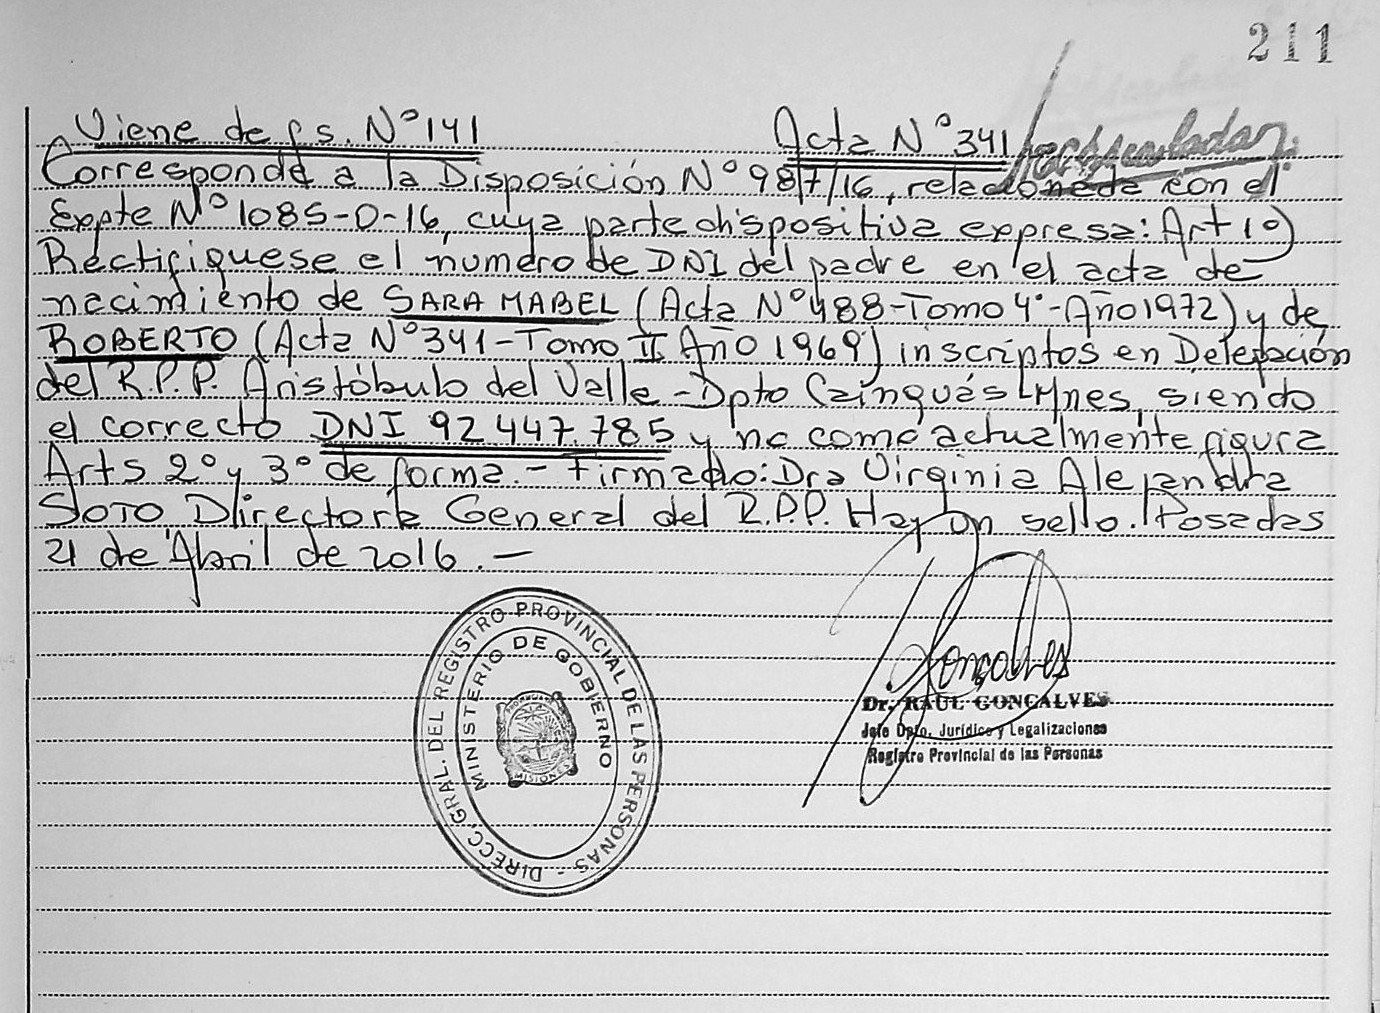 211
Viene de fs. Nº 141 Acta Nº 341
Corresponde a la Disposición Nº 987/16, relacionada con el
Expte Nº 1085-D-16, cuya parte dispositiva expresa: Art 1º)
Rectifiquese el numero de DNI del padre en el acta de
nacimiento de SARA MABEL (Acta Nº 488-Tomo 4º-Año 1972) y de
ROBERTO (Acta Nº 341-Tomo II Año 1969) inscriptos en Delegación
del R.P.P. Aristóbulo del Valle - Dpto Cainguás Mnes, siendo
el correcto DNI 92 447.785 y no como actualmente figura
Arts 2º y 3º de forma.- Firmado: Dra Virginia Alejandra
Soto Directora General del R.P.P. Hay un sello. Posadas
21 de Abril de 2016.-
DIRECC. GRAL. DEL REGISTRO PROVINCIAL DE LAS PERSONAS -
MINISTERIO DE GOBIERNO
Goncalves
Dr. RAUL GONCALVES
Jefe Dpto. Jurídico y Legalizaciones
Registro Provincial de las Personas